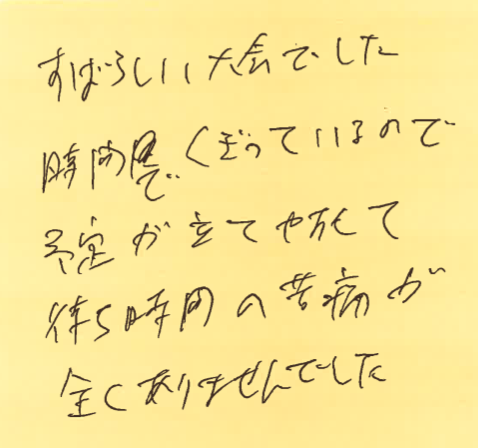 すばらしい大会でした
時間でくぎっているので
予定が立てやすくて
待ち時間の苦痛が
全くありませんでした